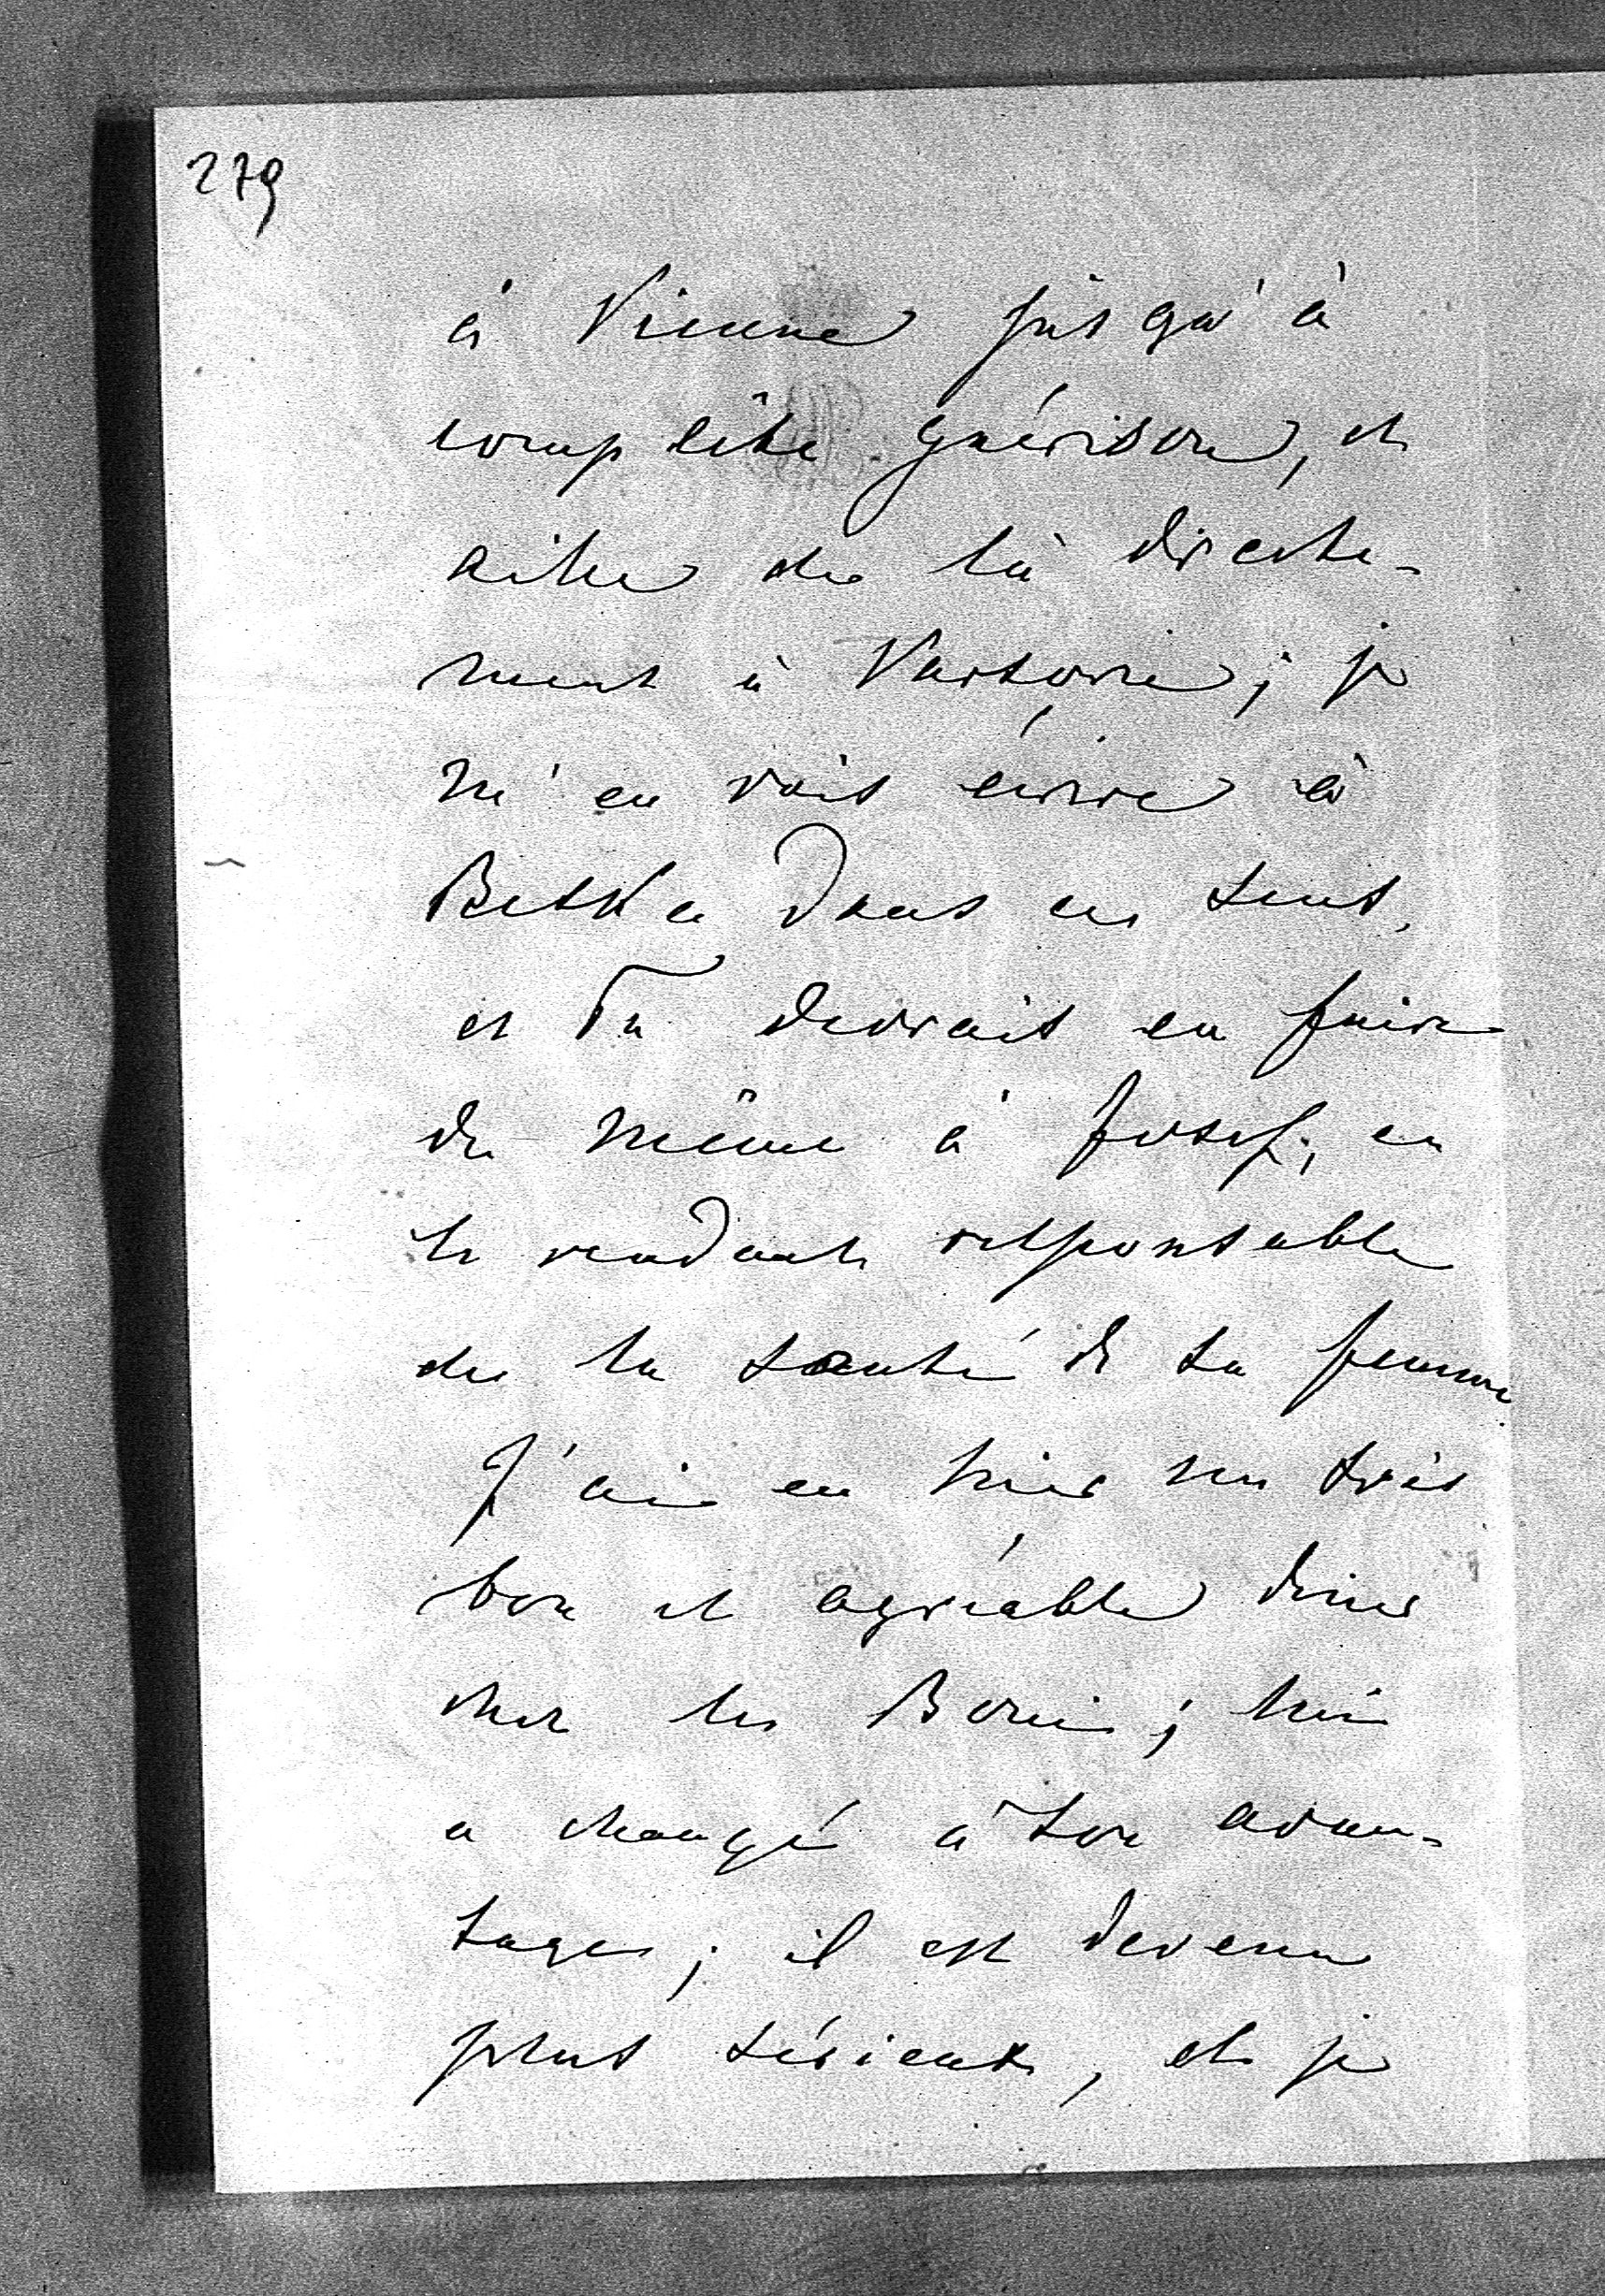 279
à Vienne jusqu'à
complète guérison, et
aille de là directe-
ment à Varsovie; je
m'en vais écrire à
Betka dans ce sens,
et Tu devrais en faire
de même à Josef; en
le rendant responsable
de la santé de sa femme
J'ai eu hier un très
bon et agréable diner
chez les ; 
a changé à son avan-
tages; il est devenu
plus sérieux, et je